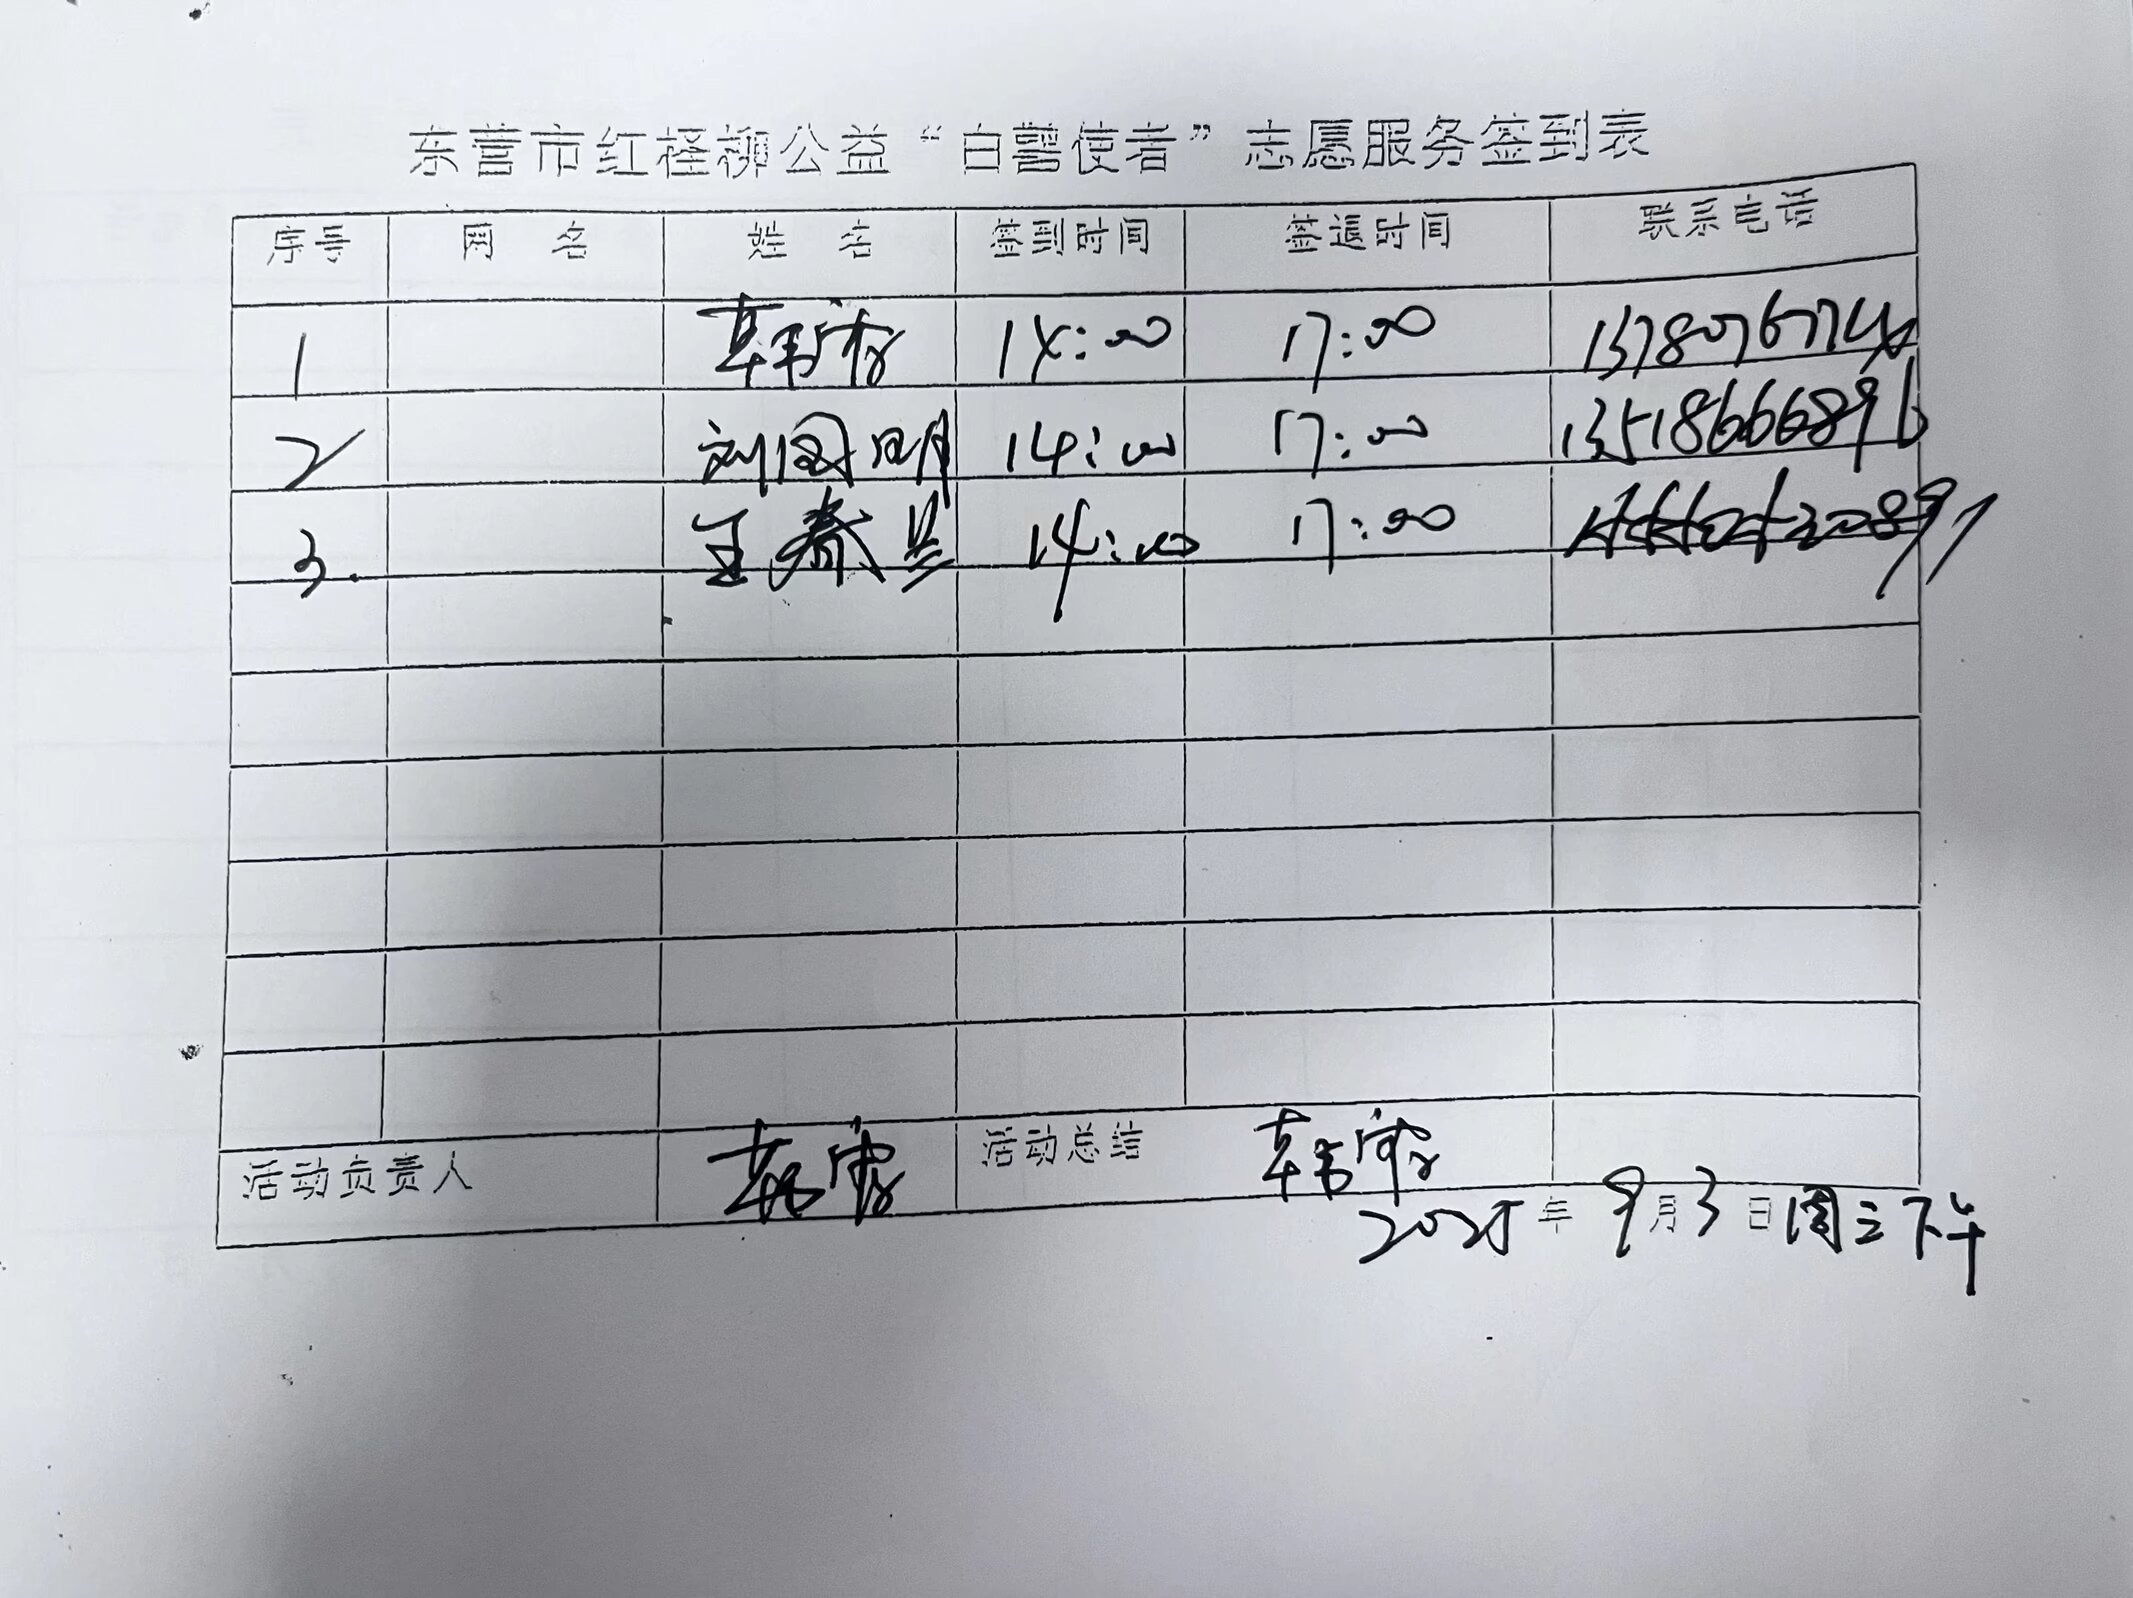 东营市红柽柳公益“白鹭使者”志愿服务签到表
序号 网名 姓名 签到时间 签退时间 联系电话
1 14:00 17:00
2 刘国明 14:00 17:00 13518666896
3. 王春兰 14:00 17:00
活动负责人 活动总结
2025年9月3日周三下午